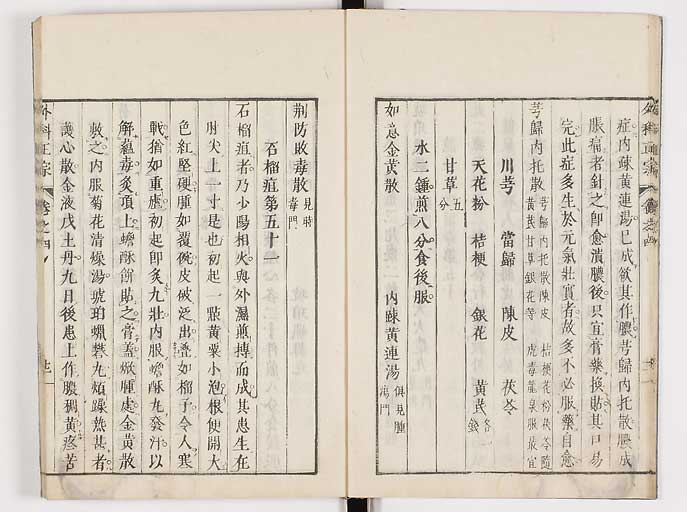 外科正宗 卷之四
症內疎黃連湯已成欲其作膿芎歸內托散膿成
脹痛者針之卽愈潰膿後只宜膏藥換貼其口易
完此症多生於元氣壯實者故多不必服藥自愈
芎歸內托散 芎歸內托散陳皮 桔梗花粉茯苓隨 黃芪甘草銀花等
川芎 當歸 陳皮 茯苓
天花粉 桔梗 銀花 黃芪 各一錢
甘草 五分
水二鍾煎八分食後服
如意金黃散 內疎黃連湯 俱見腫瘍門
荆防敗毒散 見時毒門
石榴疽第五十一
石榴疽者乃少陽相火與外濕煎摶而成其患生在
肘尖上一寸是也初起一㸃黃粟小泡根便開大
色紅堅硬腫如覆碗皮破泛出疊如榴子令人寒
戰猶如重瘧初起卽灸九壯內服蟾酥丸發汗以
解蘊毒灸頂上蟾酥餅貼之膏蓋焮腫處金黃散
敷之內服菊花清燥湯琥珀蠟礬丸煩躁熱甚者
護心散金液戊土丹九日後患上作膿稠黃疼苦
外科正宗 卷之四